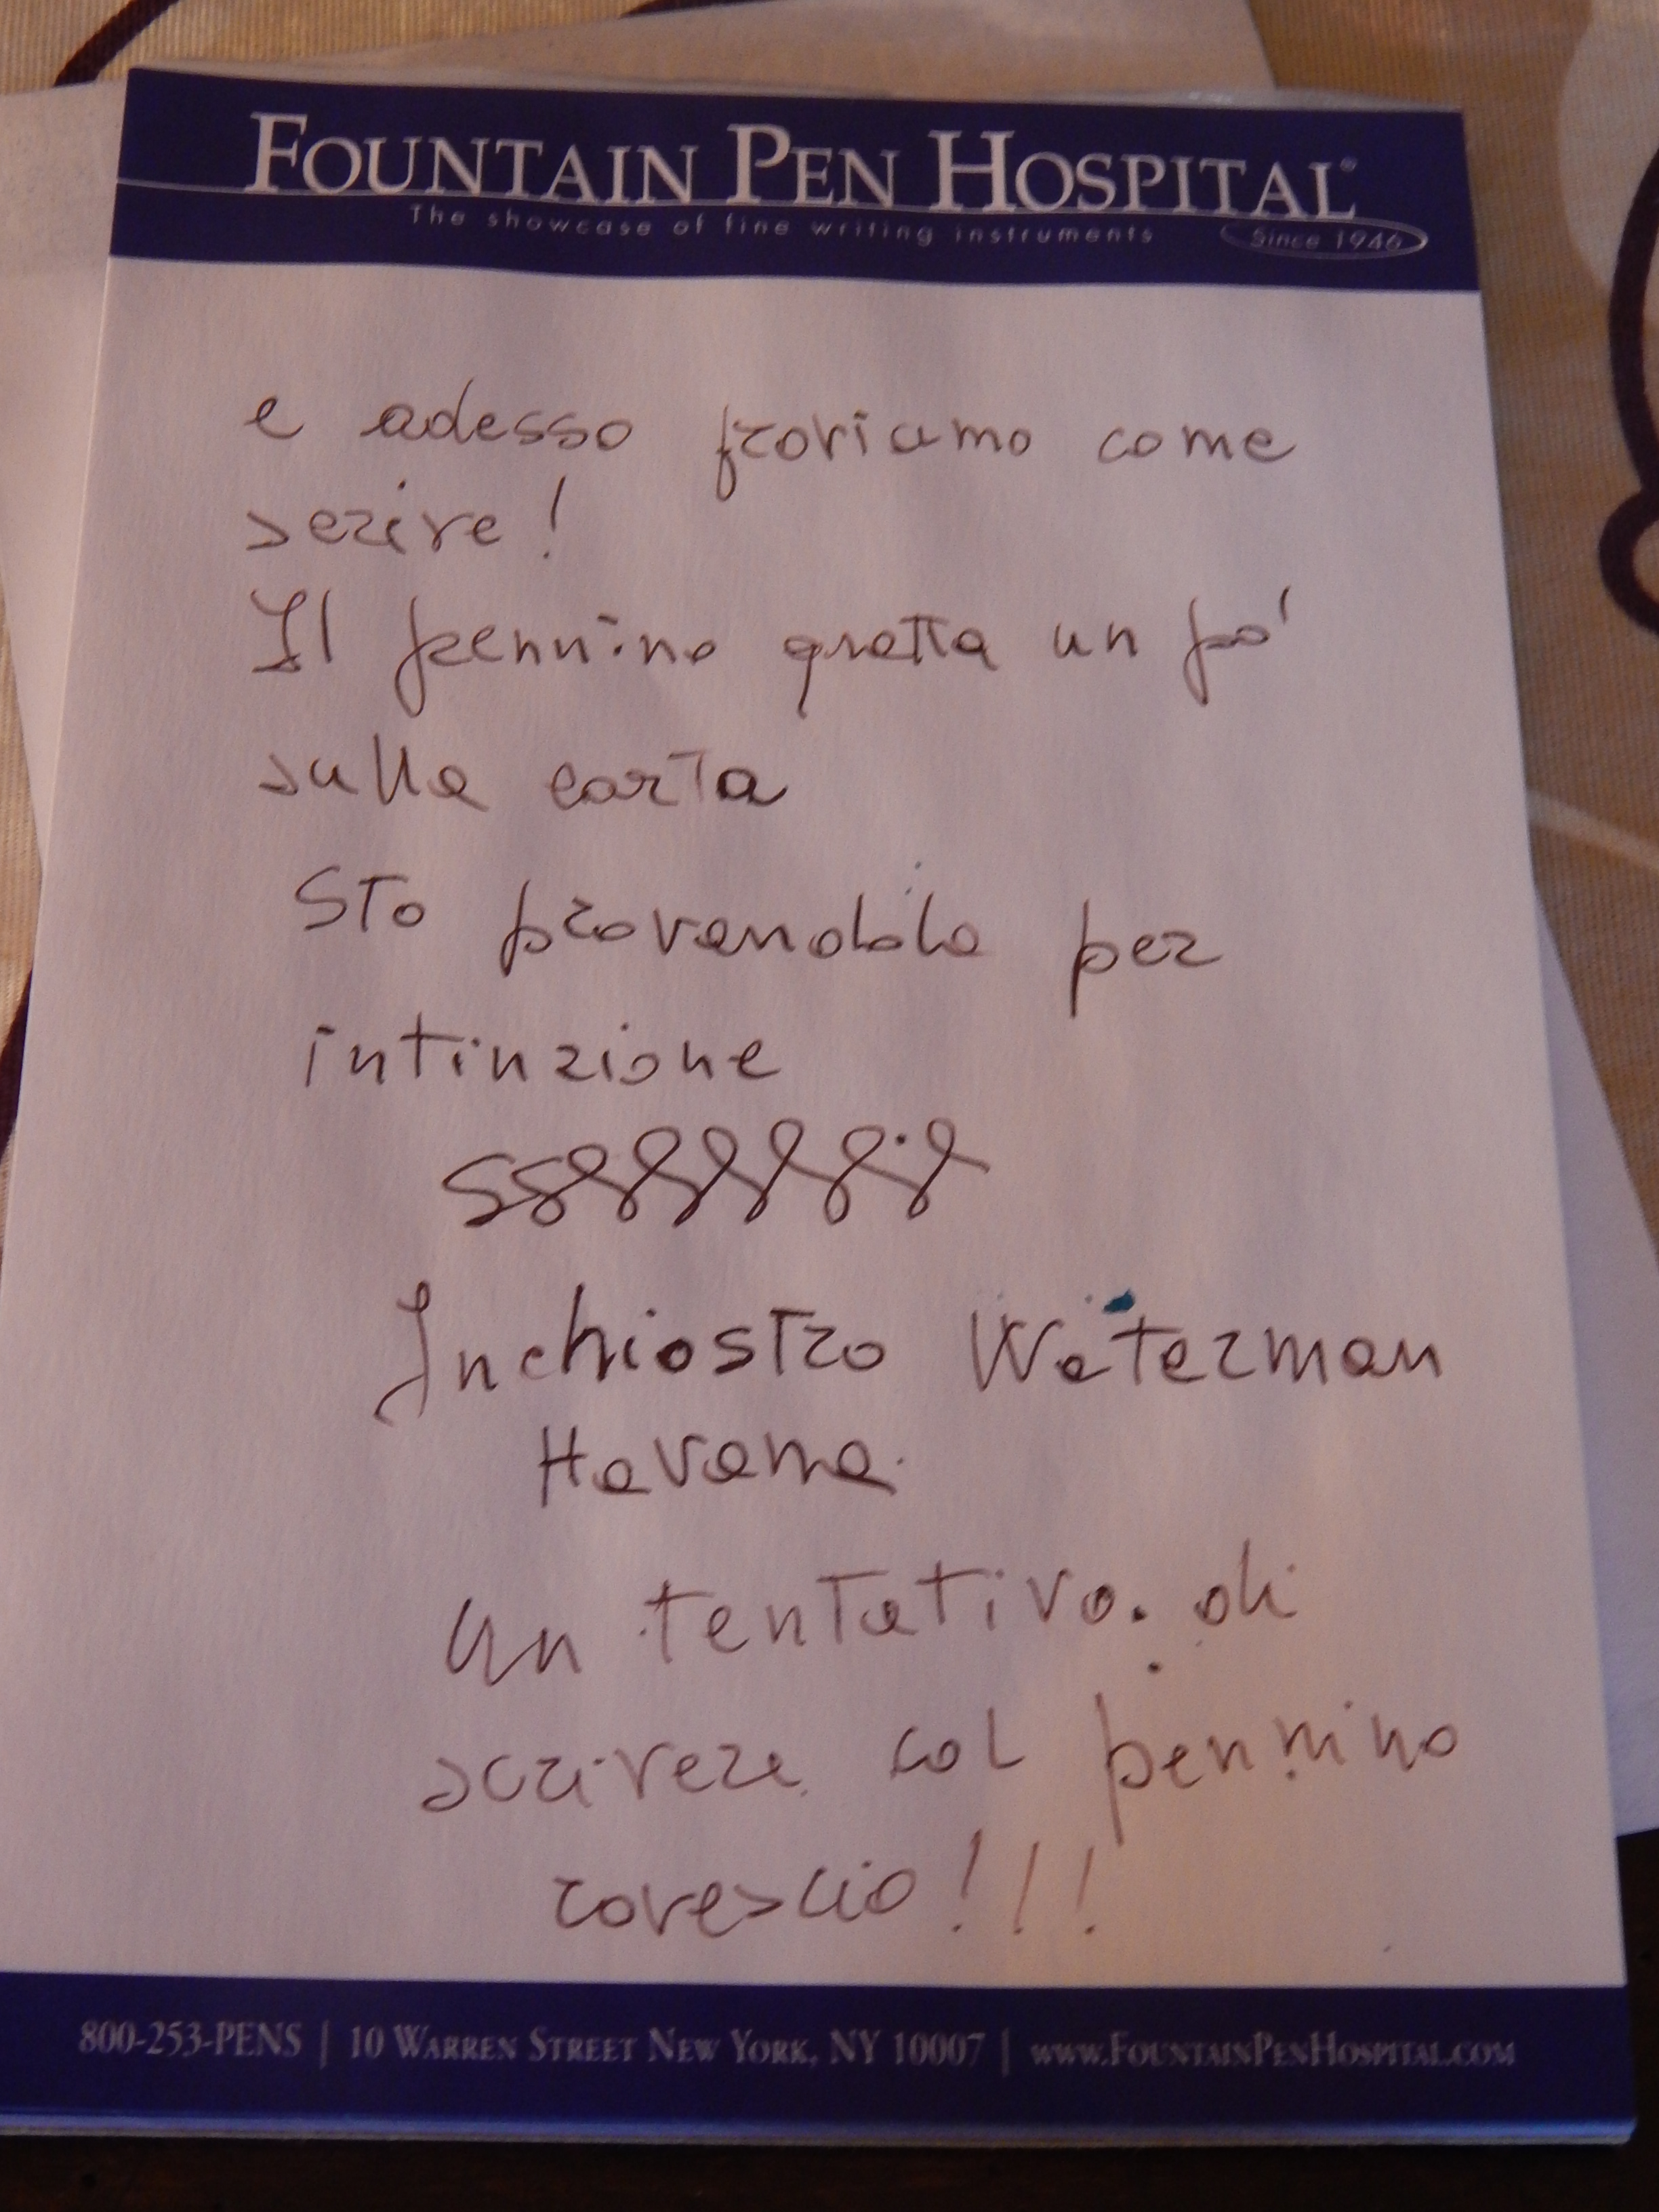 FOUNTAIN PEN HOSPITAL®
The showcase of fine writing instruments Since 1946
e adesso proviamo come
scrive!
Il pennino gratta un po'
sulla carta
STo provandola per
intinzione
Inchiostro Waterman
Havana.
Un tentativo. di
scrivere col pennino
rovescio!!!
800-253-PENS | 10 WARREN STREET NEW YORK, NY 10007 | WWW.FOUNTAINPENHOSPITAL.COM